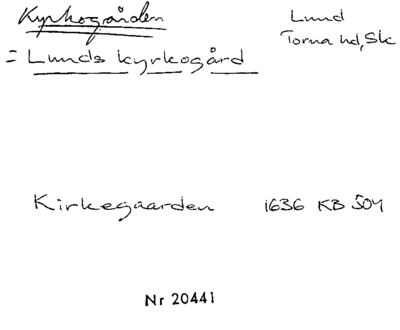 Kyrkogården
Lund
Torna hd, Sk
= Lunds kyrkogård
Kirkegaarden 1636 KB 504
Nr 20441